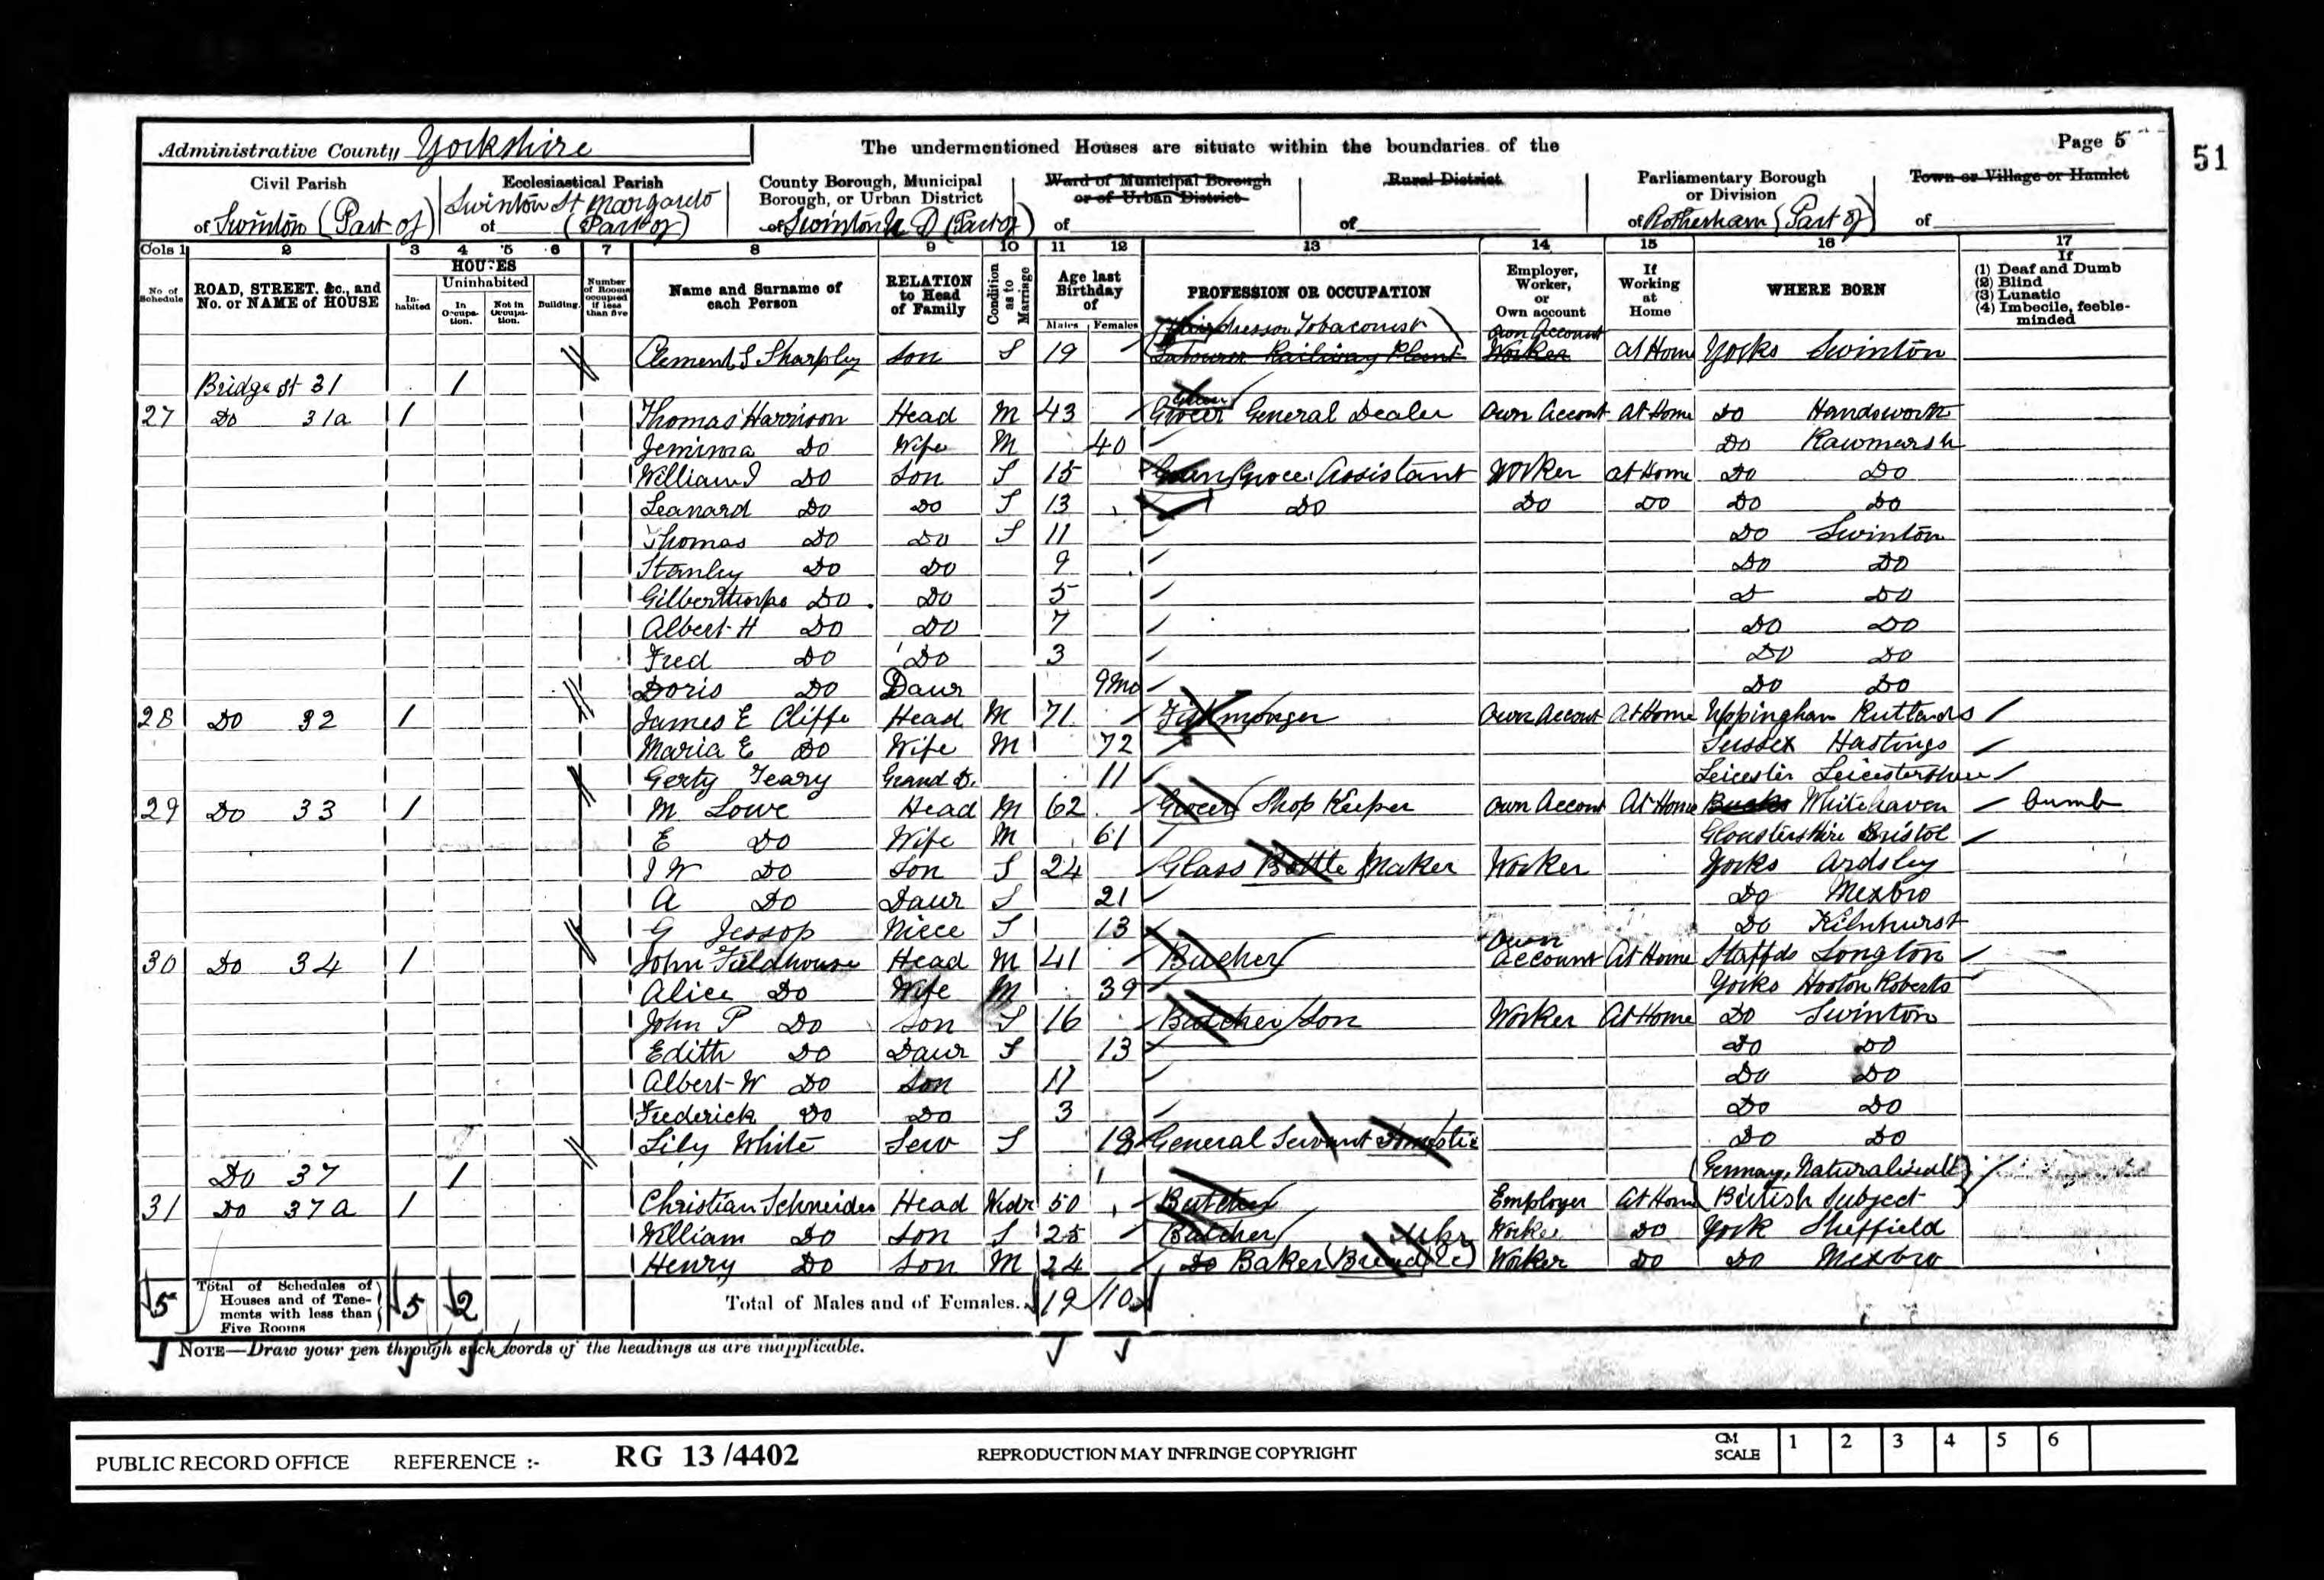 Administrative County Yorkshire
The undermentioned Houses are situate within the boundaries of the
Page 5
51
Civil Parish
of Swinton (Part of)
Ecclesiastical Parish
Swinton St Margarets
of (Part of)
County Borough, Municipal Borough, or Urban District
of Swinton U D (Part of)
Ward of Municipal Borough or of Urban District
of
Rural District
of
Parliamentary Borough or Division
of Rotherham (Part of)
Town or Village or Hamlet
of
Cols 1 2 3 4 5 6 7 8 9 10 11 12 13 14 15 16 17
No. of Schedule
ROAD, STREET, &c., and No. or NAME of HOUSE
HOUSES
Inhabited
Uninhabited
In Occupation.
Not in Occupation.
Building.
Number of Rooms occupied if less than five
Name and Surname of each Person
RELATION to Head of Family
Condition as to Marriage
Age last Birthday of
Males Females
PROFESSION OR OCCUPATION
Employer, Worker, or Own account
If Working at Home
WHERE BORN
If (1) Deaf and Dumb (2) Blind (3) Lunatic (4) Imbecile, feeble-minded
(Hairdresser Tobaconist) Own Account
Clement S Sharpley Son S 19 Labourer Railway Plant Worker at Home Yorks Swinton
Bridge St 31 1
27 Do 31a 1 Thomas Harrison Head M 43 Grocer General Dealer Own Accont At Home Do Handsworth
Jemima Do Wife M 40 Do Rawmarsh
William J Do Son S 15 Green Grocer Assistant Worker at Home Do Do
Leanard Do Do S 13 Do Do Do Do Do
Thomas Do Do S 11 Do Swinton
Stanley Do Do 9 Do Do
Gilberthorpe Do Do 5 D Do
Albert H Do Do 7 Do Do
Fred Do Do 3 Do Do
Doris Do Daur 9mo Do Do
28 Do 32 1 James E Cliffe Head M 71 Fishmonger Own Accont At Home Uppingham Rutlands
Maria E Do Wife M 72 Sussex Hastings
Gerty Teary Grand D. 11 Leicester Leicestershire
29 Do 33 1 M Lowe Head M 62 Grocer Shop Keeper Own Accont At Home Bucks Whitehaven Dumb
E Do Wife M 61 Gloustershire Bristol
J W Do Son S 24 Glass Bottle Maker Worker Yorks Ardsley
A Do Daur S 21 Do Mexbro
G Jessop Niece S 13 Do Kilnhurst
30 Do 34 1 John Fieldhouse Head M 41 Bucher Own Account At Home Staffds Longton
Alice Do Wife M 39 Yorks Hooton Roberts
John P Do Son S 16 Butcher Son Worker At Home Do Swinton
Edith Do Daur S 13 Do Do
Albert W Do Son 11 Do Do
Frederick Do Do 3 Do Do
Lily White Serv S 18 General Servant Domestic Do Do
Do 37 1 (Germany, Naturalised
31 Do 37a 1 Christian Schneider Head Widr 50 Butcher Employer At Home British Subject
William Do Son S 25 Butcher Worker Do York Sheffield
Henry Do Son M 24 Do Baker (Bread &c) Worker Do Do Mexbro
5 Total of Schedules of Houses and of Tenements with less than Five Rooms 5 2 Total of Males and of Females. 19 10
NOTE—Draw your pen through such words of the headings as are inapplicable.
PUBLIC RECORD OFFICE REFERENCE :- RG 13 /4402 REPRODUCTION MAY INFRINGE COPYRIGHT CM SCALE 1 2 3 4 5 6